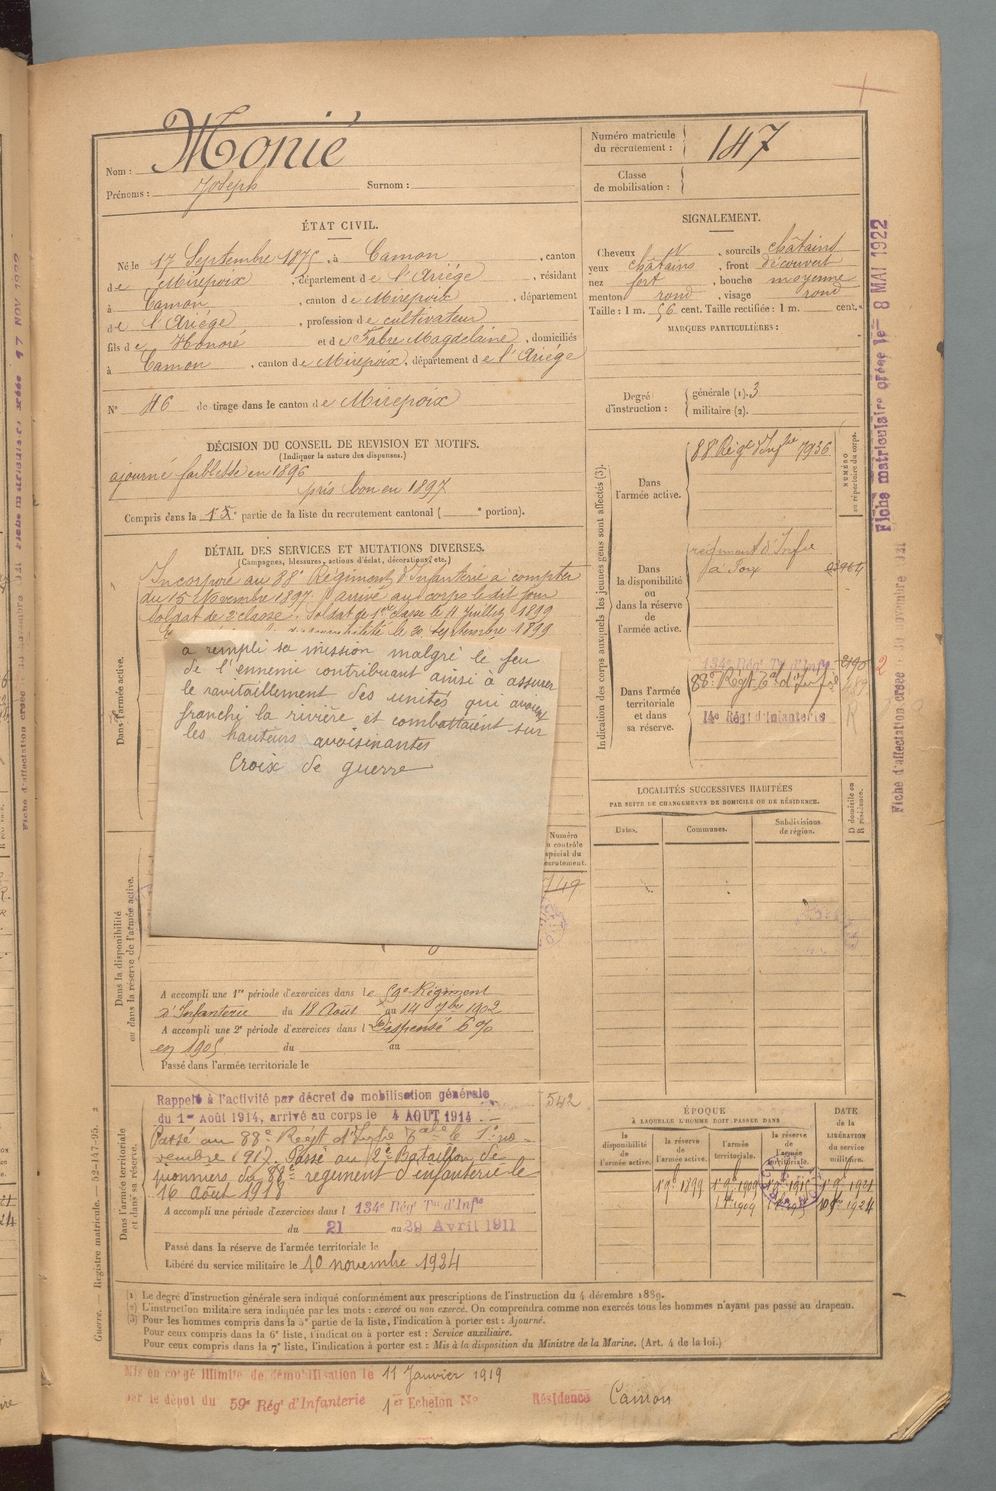 Nom : Monié
Prénoms : Joseph Surnom :
Numéro matricule du recrutement : 147
Classe de mobilisation :
ÉTAT CIVIL.
Né le 17 Septembre 1875, à Camon, canton
de Mirepoix, département de l'Ariége, résidant
à Camon, canton de Mirepoix, département
de l'Ariége, profession de cultivateur
fils de Honoré et de Fabre Magdelaine, domiciliés
à Camon, canton de Mirepoix, département de l'Ariége
N° 46 de tirage dans le canton de Mirepoix
SIGNALEMENT.
Cheveux N, sourcils châtains
yeux châtains, front découvert
nez fort, bouche moyenne
menton rond, visage rond
Taille : 1 m. 56 cent. Taille rectifiée : 1 m. cent.
MARQUES PARTICULIÈRES :
Degré d'instruction : générale (1). 3
militaire (2).
DÉCISION DU CONSEIL DE REVISION ET MOTIFS.
(Indiquer la nature des dispenses.)
ajourné faiblesse en 1896
pris bon en 1897
Compris dans la 1re partie de la liste du recrutement cantonal ( e portion).
DÉTAIL DES SERVICES ET MUTATIONS DIVERSES.
(Campagnes, blessures, actions d'éclat, décorations, etc.)
Dans l'armée active.
Incorporé au 88e Régiment d'Infanterie à compter
du 15 Novembre 1897, arrivé au corps le dit jour
soldat de 2e classe. Soldat de 1ère classe le 11 Juillet 1899
disponibilité le 20 Septembre 1899
a rempli sa mission malgré le feu
de l'ennemi contribuant ainsi à assurer
le ravitaillement des unités qui avaient
franchi la rivière et combattaient sur
les hauteurs avoisinantes
Croix de guerre
Indication des corps auxquels les jeunes gens sont affectés (3).
Dans l'armée active. 88e Régt d'Infie 7936
NUMÉRO au répertoire du corps.
Dans la disponibilité ou dans la réserve de l'armée active.
régiment d'Infie
à Foix
Dans l'armée territoriale et dans sa réserve.
134e Régt Tal d'Infie
88e Régt Tal d'Infie
14e Régt d'Infanterie
LOCALITÉS SUCCESSIVES HABITÉES
PAR SUITE DE CHANGEMENTS DE DOMICILE OU DE RÉSIDENCE.
Dates. Communes. Subdivisions de région. D domicile ou R résidence.
Dans la disponibilité ou dans la réserve de l'armée active.
Numéro au contrôle spécial du recrutement.
149
A accompli une 1re période d'exercices dans le 59e Régiment
d'Infanterie du 18 Août au 14 7bre 1902
A accompli une 2e période d'exercices dans l Dispensé 6 %
en 1905 du au
Passé dans l'armée territoriale le
Dans l'armée territoriale et dans sa réserve.
Rappelé à l'activité par décret de mobilisation générale
du 1er Août 1914, arrivé au corps le 4 AOUT 1914
542
Passé au 88e Régt d'Infie Tale le 1er no-
vembre 1917. Passé au 2e Bataillon de
pionniers du 88e régiment d'infanterie le
16 août 1918
A accompli une période d'exercices dans l 134e Régt Tal d'Infie
du 21 au 29 Avril 1911
Passé dans la réserve de l'armée territoriale le
Libéré du service militaire le 10 novembre 1924
ÉPOQUE
À LAQUELLE L'HOMME DOIT PASSER DANS
DATE DE LA LIBÉRATION du service militaire.
la disponibilité de l'armée active. la réserve de l'armée active. l'armée territoriale. la réserve de l'armée territoriale.
(1) Le degré d'instruction générale sera indiqué conformément aux prescriptions de l'instruction du 4 décembre 1889.
(2) L'instruction militaire sera indiquée par les mots : exercé ou non exercé. On comprendra comme non exercés tous les hommes n'ayant pas passé au drapeau.
(3) Pour les hommes compris dans la 5e partie de la liste, l'indication à porter est : Ajourné.
Pour ceux compris dans la 6e liste, l'indication à porter est : Service auxiliaire.
Pour ceux compris dans la 7e liste, l'indication à porter est : Mis à la disposition du Ministre de la Marine. (Art. 4 de la loi.)
Mis en congé illimité de démobilisation le 11 Janvier 1919
par le dépôt du 59e Régt d'Infanterie 1er Echelon N° Résidence Camon
Guerre. — Registre matricule. — 52-147-95.
Fiche matriculaire créée le 8 MAI 1922